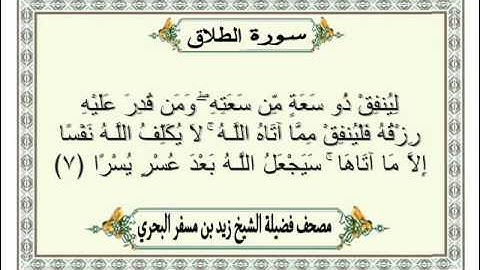 سورة الطلاق
لِيُنفِقْ ذُو سَعَةٍ مِّن سَعَتِهِ ۖ وَمَن قُدِرَ عَلَيْهِ
رِزْقُهُ فَلْيُنفِقْ مِمَّا آتَاهُ اللَّهُ ۚ لَا يُكَلِّفُ اللَّهُ نَفْسًا
إِلَّا مَا آتَاهَا ۚ سَيَجْعَلُ اللَّهُ بَعْدَ عُسْرٍ يُسْرًا (٧)
مصحف فضيلة الشيخ زيد بن مسفر البحري